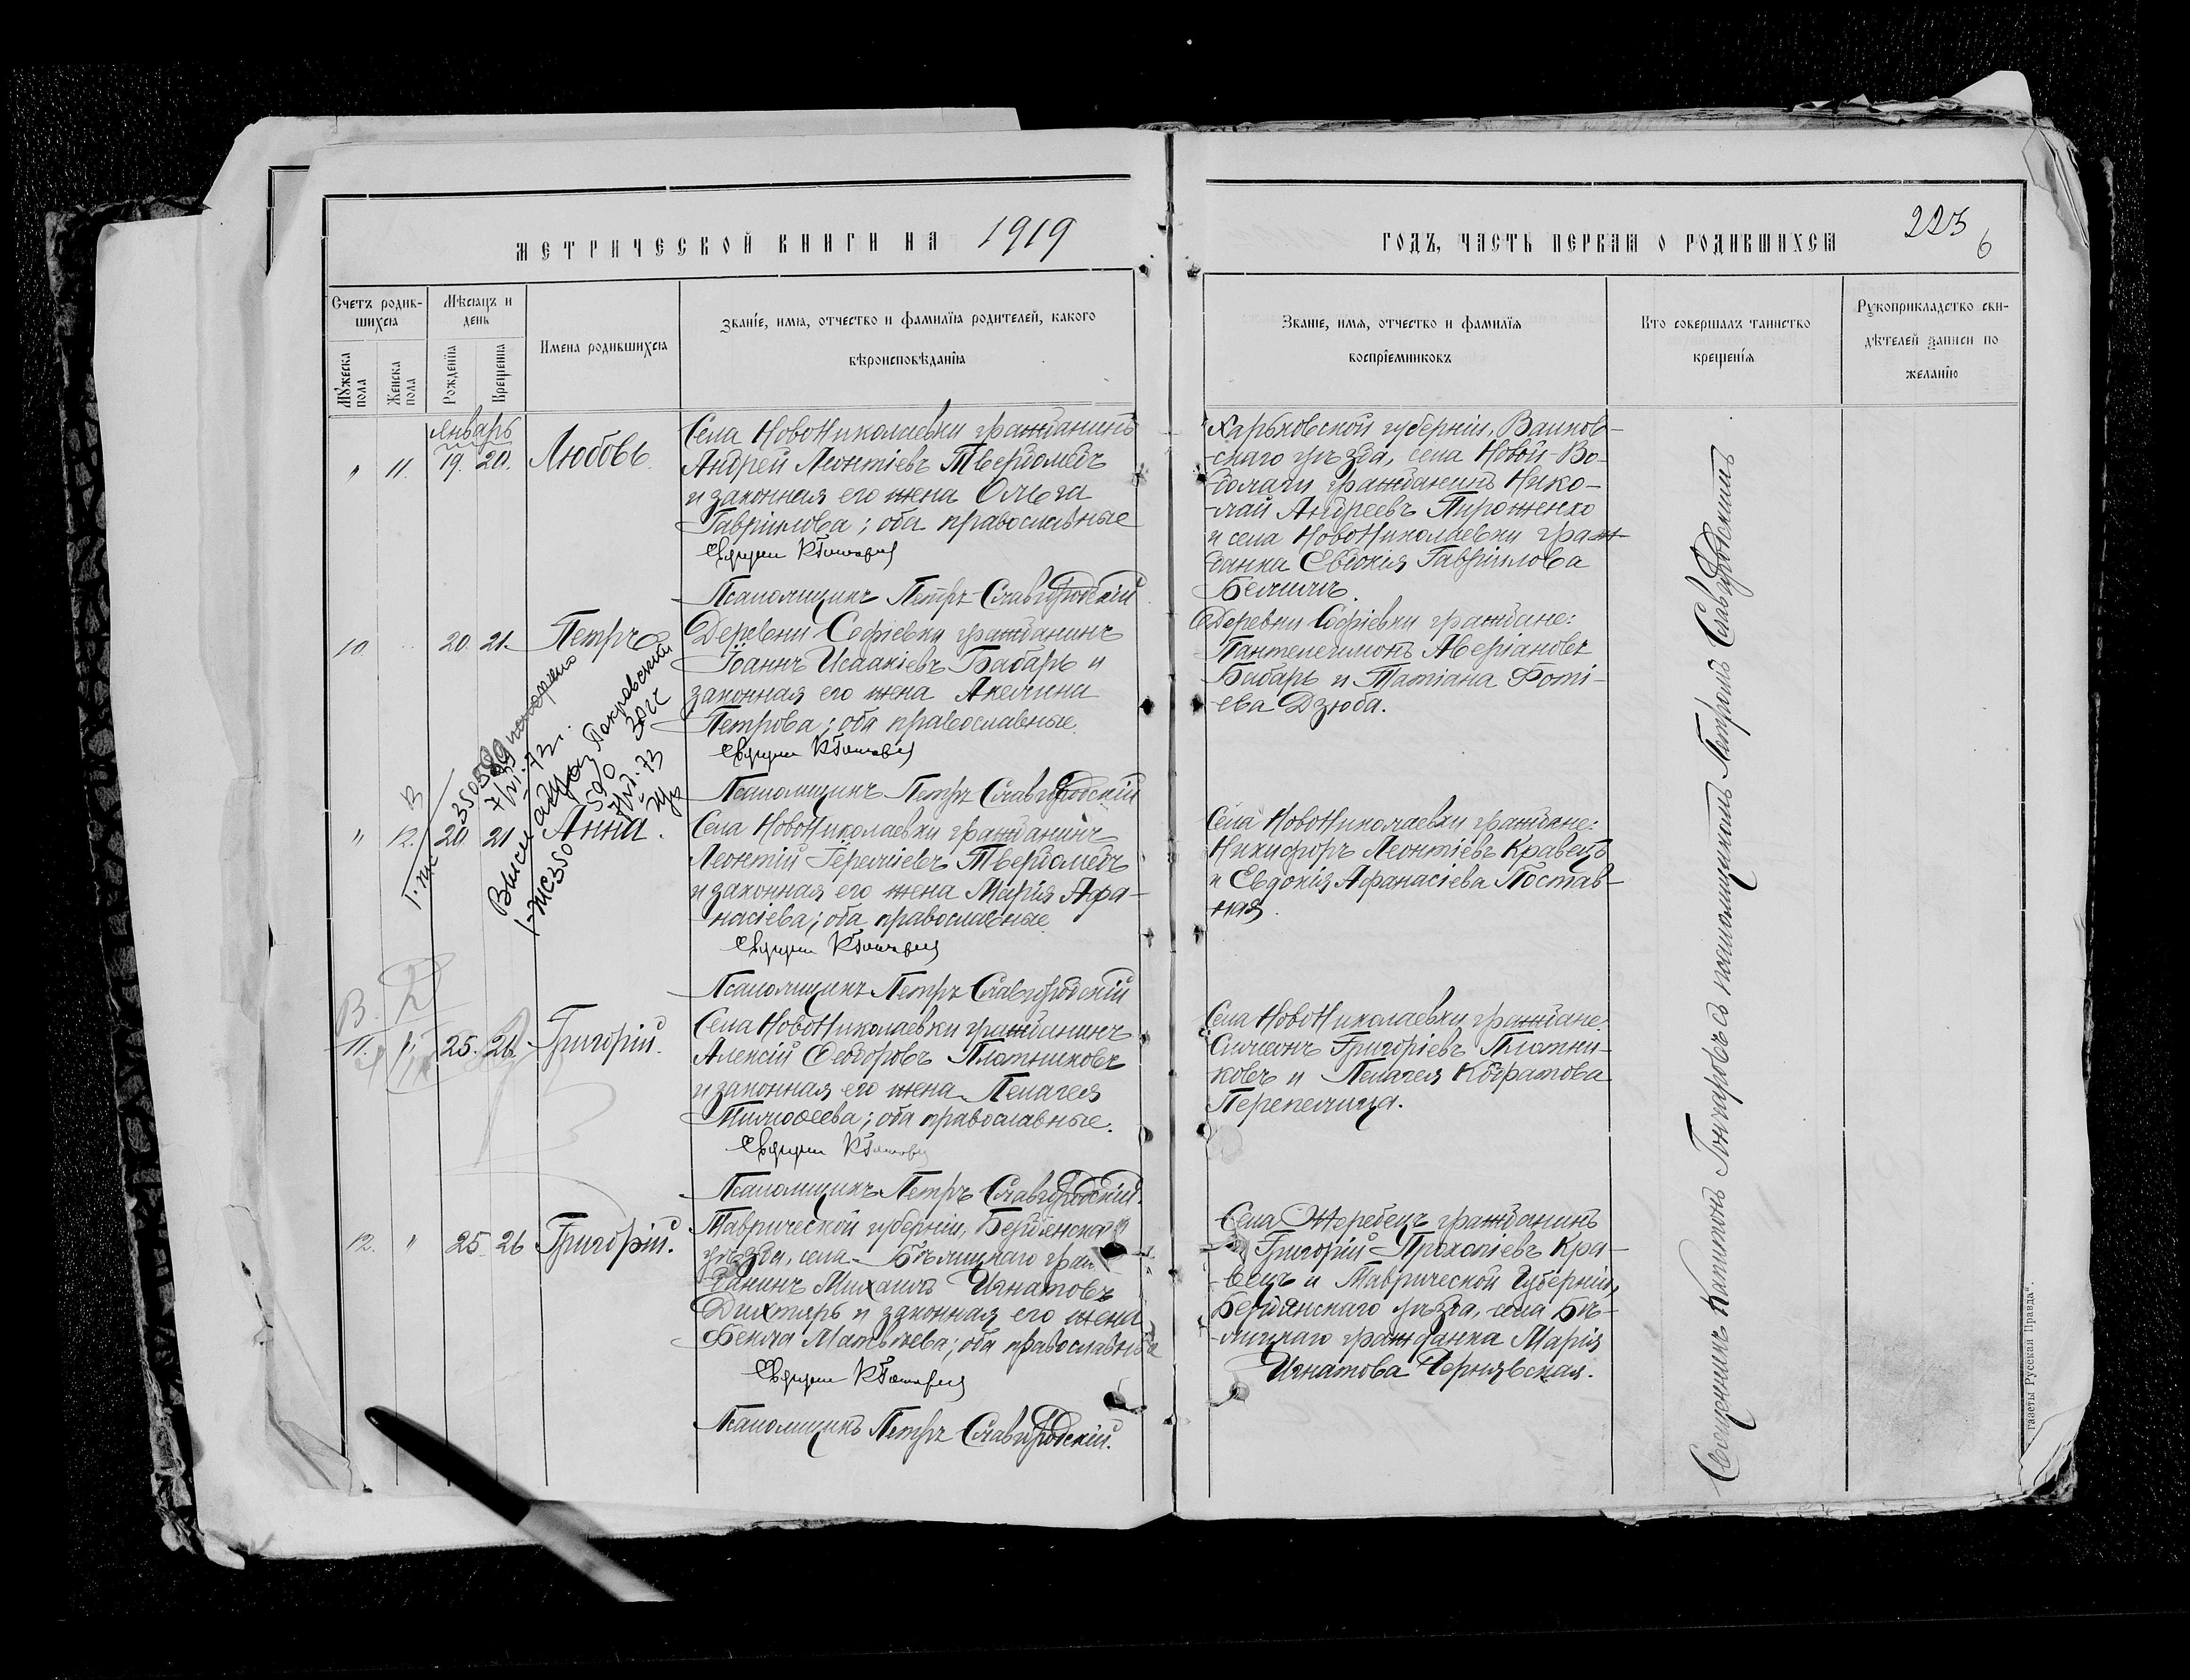 МЕТРИЧЕСКОЙ КНИГИ НА 1919
ГОДЪ, ЧАСТЬ ПЕРВАЯ О РОДИВШИХСЯ
223
6
Счетъ родив-
шихся
Мѣсяцъ и
день
Мужеска пола
Женска пола
Рожденія
Крещенія
Имена родившихся
Званіе, имя, отчество и фамилія родителей, какого
вѣроисповѣданія
Званіе, имя, отчество и фамилія
воспріемниковъ
Кто совершалъ таинство
крещенія
Рукоприкладство сви-
дѣтелей записи по
желанію
Январь
" 11. 19. 20. Любовь.
Села НовоНиколаевки гражданинъ
Андрей Леонтіевъ Твердомедъ
и законная его жена Ольга
Гавріилова; оба православные
Псаломщикъ Петръ Славгородскій
Харьковской губерніи, Валков-
скаго уѣзда, села Новой-Во-
долаги гражданинъ Нико-
лай Андреевъ Пироженко
и села НовоНиколаевки граж-
данка Евдокія Гавріилова
10 .. 20. 21. Петръ
Деревни Софіевки гражданинъ
Іоаннъ Исаакіевъ Бабарь и
законная его жена Акелина
Петрова; оба православные.
Псаломщикъ Петръ Славгородскій
Деревни Софіевки граждане:
Пантелеимонъ Аверіановъ
Бабарь и Татіана Фоті-
ева Дзюба.
" 12. 20. 21 Анна.
350589 повторно
7/VI-73 г.
I-ЖС 350590
Села НовоНиколаевки гражданинъ
Леонтій Іереміевъ Твердомедъ
и законная его жена Марія Афа-
насіева; оба православные
Псаломщикъ Петръ Славгородскій
Села НовоНиколаевки граждане:
Никифоръ Леонтіевъ Кравецъ
и Евдокія Афанасіева Постав-
ная.
11. " 25. 26. Григорій.
Села НовоНиколаевки гражданинъ
Алексій Ѳеодоровъ Плотниковъ
и законная его жена Пелагея
Тимоѳеева; оба православные.
Псаломщикъ Петръ Славгородскій.
Села НовоНиколаевки граждане:
Симеонъ Григоріевъ Плотни-
ковъ и Пелагея Кодратова
Перепелица.
12. " 25. 26 Григорій.
Таврической губерніи, Бердянскаго
уѣзда, села Бѣлицкаго граж-
данинъ Михаилъ Игнатовъ
Дихтярь и законная его жена
Ѳекла Матѳіева; оба православные
Псаломщикъ Петръ Славгородскій.
Села Жеребецъ гражданинъ
Григорій Прокопіевъ Кра-
вецъ и Таврической Губерніи,
Бердянскаго уѣзда, села Бѣ-
лицкаго гражданка Марія
Игнатова Чернявская.
Священникъ Капитонъ Гончаровъ съ псаломщикомъ Петромъ Славгородскимъ
газеты Русская Правда".